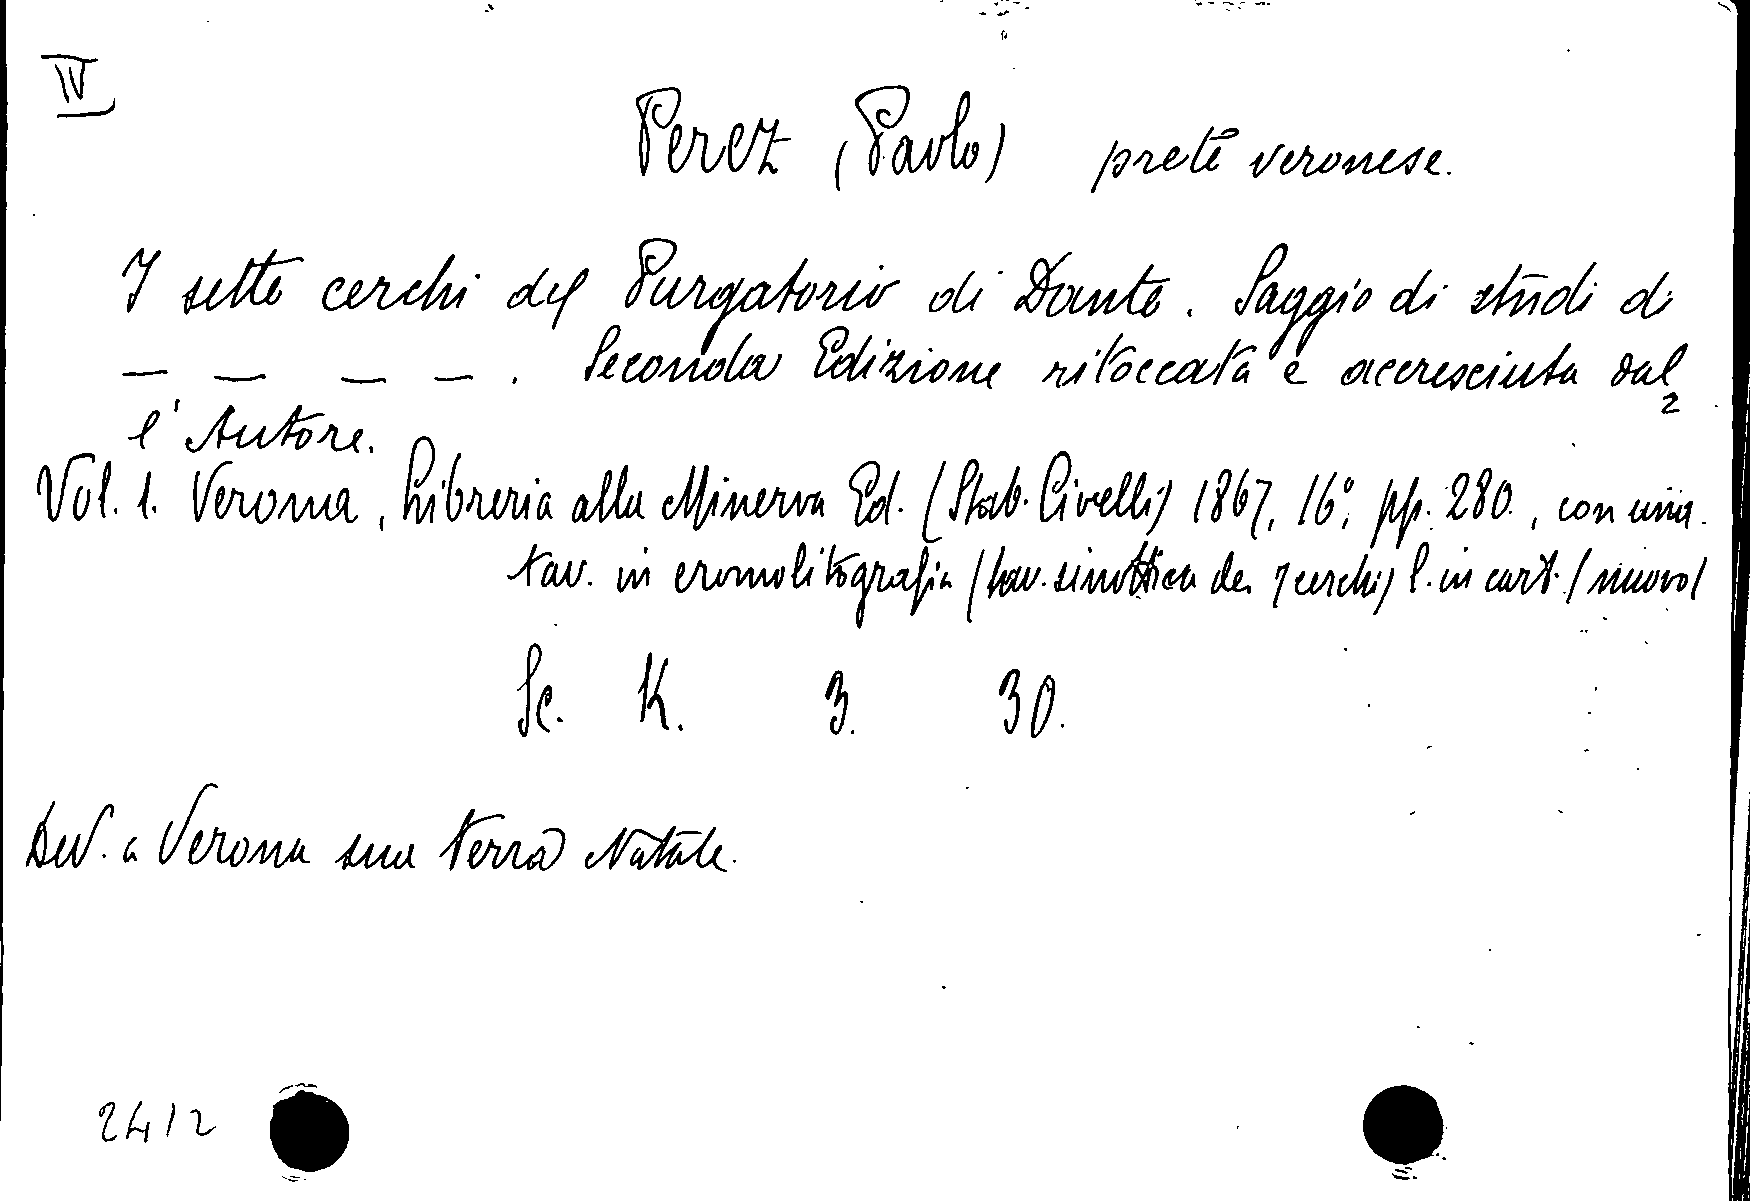 IV
Perez (Paolo) prete veronese.
I sette cerchi del Purgatorio di Dante. Saggio di studi di
— — — — . Seconda Edizione ritoccata e accresciuta dal=
l'Autore.
Vol. 1. Verona, Libreria alla Minerva Ed. (Stab. Civelli) 1867, 16°, pp. 280, con una
tav. in cromolitografia (tav. sinottica dei 7 cerchi) l. in cart. (nuovo)
Sc. K. 3. 30.
Ded. a Verona sua terra Natale.
2412